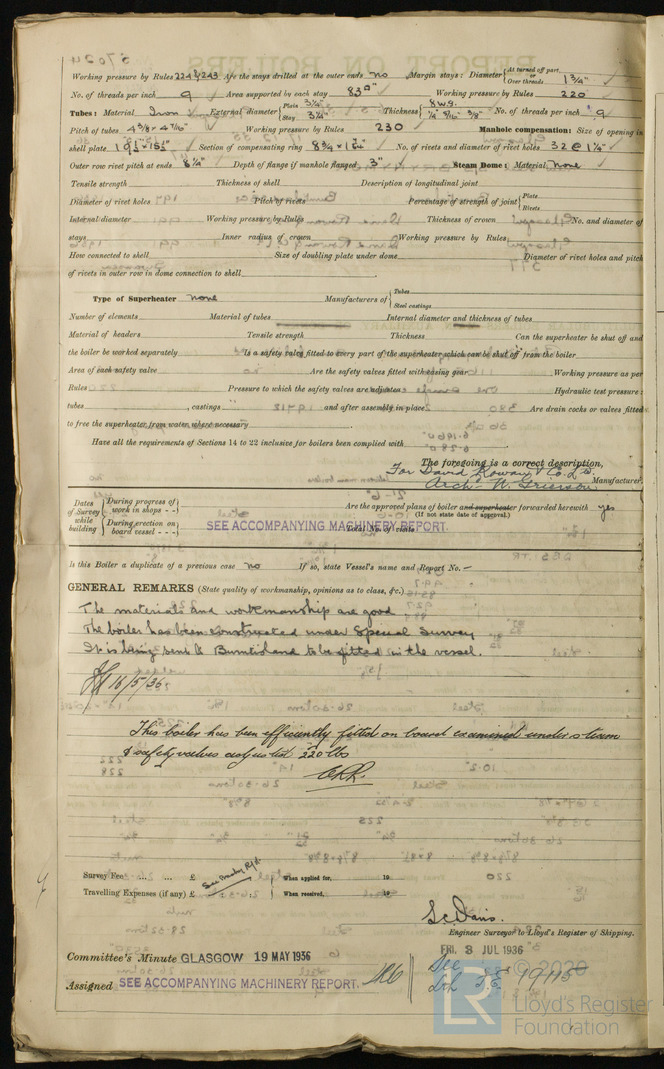 Working pressure by Rules 224 & 243 Are the stays drilled at the outer ends no Margin stays: Diameter { At turned off part, or Over threads 1 3/4"
No. of threads per inch 9 Area supported by each stay 83 □" Working pressure by Rules 220
Tubes: Material Iron External diameter { Plain 3 1/4" Stay 3 1/4" Thickness { 8 W.G. 1/4" 5/16" 3/8" No. of threads per inch 9
Pitch of tubes 4 3/8 x 4 7/16" Working pressure by Rules 230 Manhole compensation: Size of opening in
shell plate Section of compensating ring No. of rivets and diameter of rivet holes 32 @ 1 1/4"
Outer row rivet pitch at ends 8 1/4" Depth of flange if manhole flanged 3" Steam Dome: Material None
Tensile strength Thickness of shell Description of longitudinal joint
Diameter of rivet holes Pitch of rivets Percentage of strength of joint { Plate Rivets
Internal diameter Working pressure by Rules Thickness of crown No. and diameter of
stays Inner radius of crown Working pressure by Rules
How connected to shell Size of doubling plate under dome Diameter of rivet holes and pitch
of rivets in outer row in dome connection to shell
Type of Superheater None Manufacturers of { Tubes Steel castings
Number of elements Material of tubes Internal diameter and thickness of tubes
Material of headers Tensile strength Thickness Can the superheater be shut off and
the boiler be worked separately Is a safety valve fitted to every part of the superheater which can be shut off from the boiler
Area of each safety valve Are the safety valves fitted with easing gear Working pressure as per
Rules Pressure to which the safety valves are adjusted Hydraulic test pressure:
tubes castings and after assembly in place Are drain cocks or valves fitted
to free the superheater from water where necessary
Have all the requirements of Sections 14 to 22 inclusive for boilers been complied with
The foregoing is a correct description,
For David Rowan & Co Ld
Arch. W. Grierson Manufacturer.
Dates of Survey while building { During progress of work in shops - - During erection on board vessel - - - }
Are the approved plans of boiler and superheater forwarded herewith yes
(If not state date of approval.)
SEE ACCOMPANYING MACHINERY REPORT. Total No. of visits
Is this Boiler a duplicate of a previous case no If so, state Vessel's name and Report No. -
GENERAL REMARKS (State quality of workmanship, opinions as to class, &c.)
The materials and workmanship are good.
The boiler has been constructed under Special Survey
It is being sent to Burntisland to be fitted in the vessel.
16/5/36
This boiler has been efficiently fitted on board examined under steam
& safety valves adjusted 220 lbs
Survey Fee ... ... £ See Mchy Rpt. When applied for, 19
Travelling Expenses (if any) £ When received, 19
Engineer Surveyor to Lloyd's Register of Shipping.
Committee's Minute GLASGOW 19 MAY 1936 FRI. 3 JUL 1936
Assigned SEE ACCOMPANYING MACHINERY REPORT.
See
© 2020
Lloyd's Register
Foundation
LR